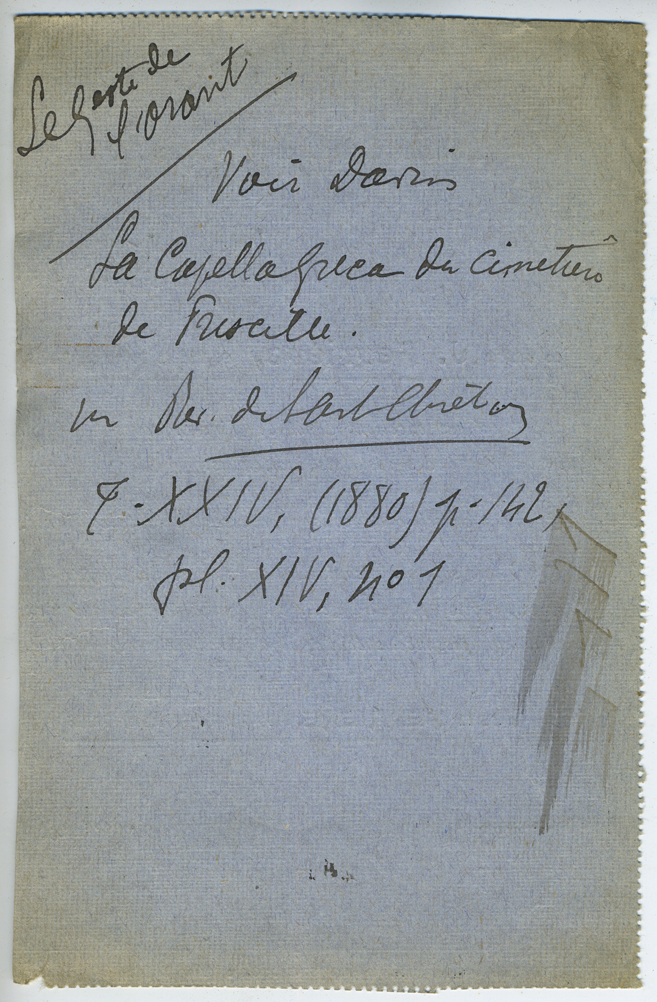 Le Geste de
l'orant
Voir Davin
La Capella Greca du cimetière
de Priscille.
in Rev. de l'art Chrétien
T. XXIV, (1880) p. 142,
pl. XIV, no 1